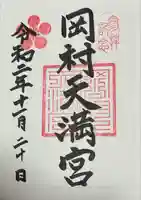 岡村天満宮
令和二年十一月二十日